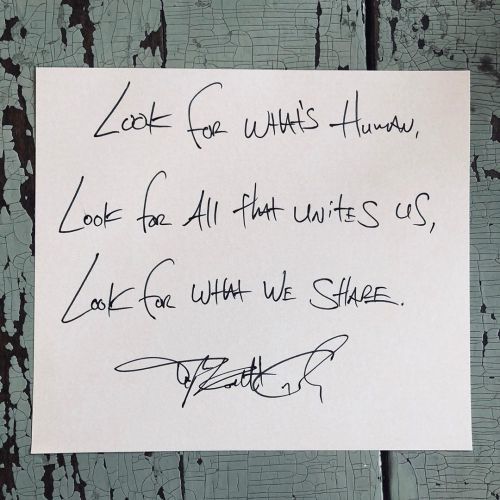 Look for what's Human,
Look for All that unites us,
Look for what we share.